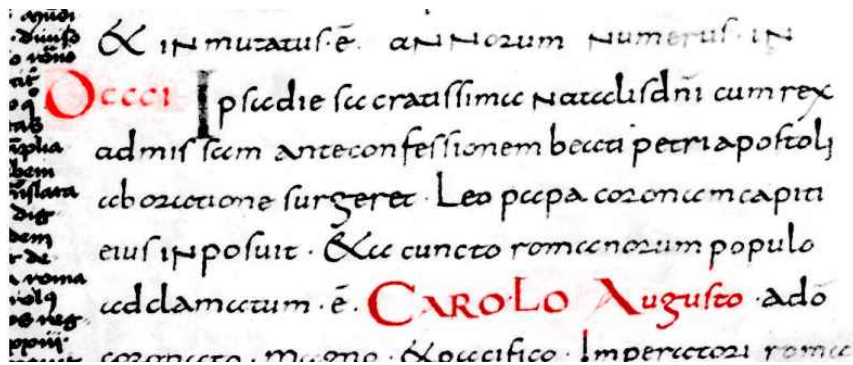 & inmutatus·ē· annorum numerus· in
Dccci Ipsa die sacratissima natalis dñi cum rex
ad missam ante confessionem beati petri apostoli
ab oratione surgeret· Leo papa coronam capiti
eius inposuit· &a cuncto romanorum populo
adclamatum·ē· CAROLO Augusto· adō
coronato· magno· &pacifico· Imperatori roma